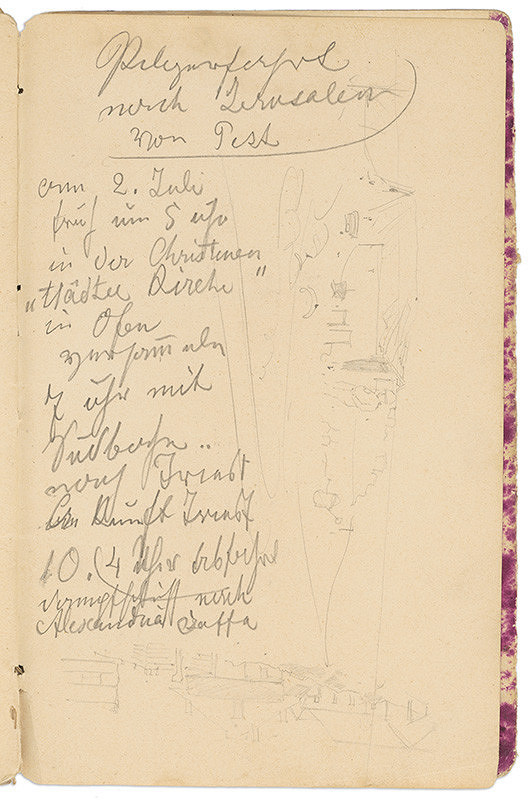 Pilgerfahrt
nach Jerusalem
von Pest
am 2. Juli
früh um 5 uhr
in der Christinen
„städter Kirche"
in Ofen
versam̄eln
7 uhr mit
Südbahn
nach Triest
Ankunft Triest
10. (4 Uhr Abfahrt
dampfschiff nach
Alexandria Jaffa